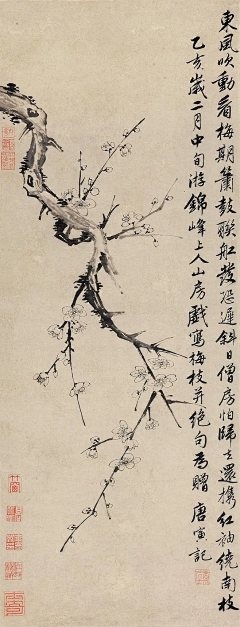 東風吹動看梅期簫鼓聯船發恐遲斜日僧房怕歸去還攜紅袖繞南枝
乙亥歲二月中旬游錦峰上人山房戲寫梅枝并絕句為贈唐寅記